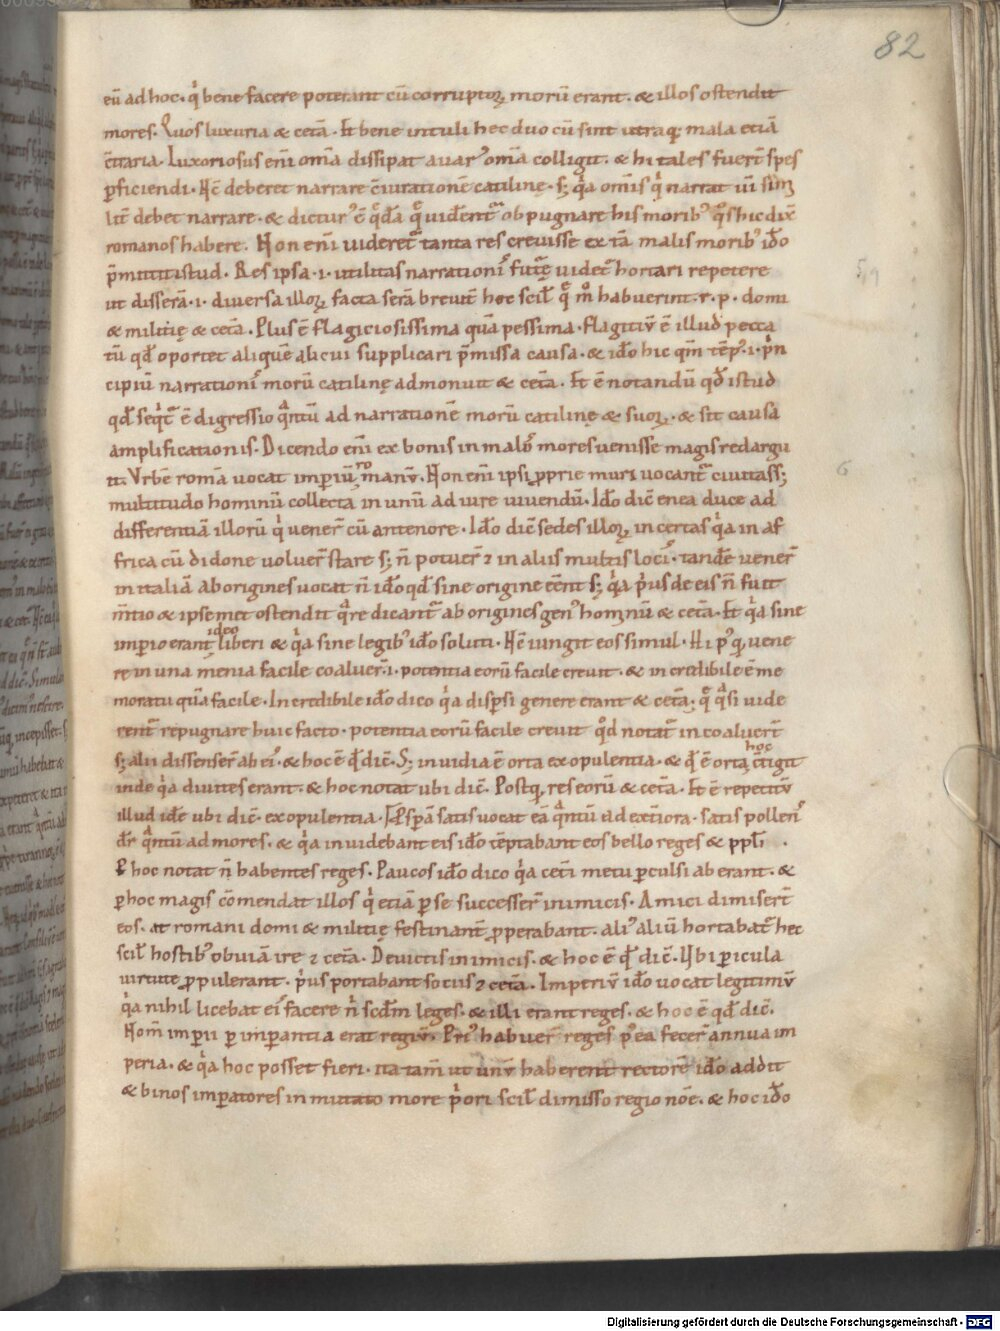 82
eū ad hoc. qͥ bene facere poterant cū corruptoꝝ morū erant. & illos ostendit
mores. Quos luxuria & cetā. Et bene intuli hec duo cū sint utraq; mala etiā
ctraria. Luxoriosus eni oma dissipat auar᾿ oma colligit. & hi tales fuert spes
ꝑficiendi. Hc deberet narrare ciuratione catiline. s; qͣa omis qͥ narrat
lit debet narrare. & dictur᾿ ē ob pugnare his morib᾿ hic dix
romanos habere. Non eni uideret tanta res creuisse ex tā malis morib᾿ ido
p̄mittit istud. Res ipsa .i. utilitas narrationis future uidet hortari repetere
ut disserā .i. diuersa illoꝝ facta serā breuit hoc scil habuerint .r. p. domi
& militię & cetā. Plus ē flagiciosissima quā pessima. flagitiū ē illud pecca
tū qd oportet aliquē alicui supplicari p̄missa causa. & ido hic qm .i. prin
cipiū narrationis morū catilinę admonuit & cetā. Et ē notandū qd istud
qd seqͥt ē digressio qͣntū ad narrationē morū catilinę & suoꝝ. & fit causa
amplificationis. Dicendo eni ex bonis in malos mores uenisse magis redargu
it. Vrbē romā uocat imperiū romanū. Non eni ipsi proprie muri uocant ciuitas s;
multitudo hominū collecta in unū ad iure uiuendū. Ido dic enea duce ad
differentiā illorū qͥ uener cū antenore. Ido dic sedes illoꝝ incertas qͣa in af
frica cū didone voluer stare s; n̄ potuer ⁊ in aliis multis locis. tande uener
in italiā aborigines uocat n̄ ido qd sine origine eent s; qͣa pus de eis n̄ fuit
mtio & ipsemet ostendit qͣre dicant ab origines gen᾿ hominū & cetā. Et qͣa sine
imperio erant ideo liberi & qͣa sine legib᾿ ido soluti. Hc iungit eos simul. Hi pq uene
re in una menia facile coaluer .i. potentia eorū facile creuit. & incredibile ē me
moratu quā facile. Incredibile ido dico qͣa disp̄si genere erant & cetā. qͣsi uide
rent repugnare huic facto. potentia eorū facile creuit qd notat in coaluert
s; alii dissenser ab ei᾿. & hoc ē qd dic. S; inuidia ē orta ex opulentia. & qd ē orta hoc ctigit
inde qͣa diuites erant. & hoc notat ubi dic. Postq res eorū & cetā. Et ē repetitū
illud ide ubi dic ex opulentia. Psperā satis uocat eā qͣntū ad exteriora. satis pollens
dr qͣntū ad mores. & qͣa inuidebant eis ido teptabant eos bello reges & ppli.
Phoc notat n̄ habentes reges. Paucos ido dico qͣa ceti metu ꝑculsi aberant. &
ꝑ hoc magis comendat illos qͥ etiā ꝑ se successer inimicis. Amici dimisert
eos. at romani domi & militię festinant ꝓperabant. ali᾿ aliū hortabat hec
scil hostib᾿ obuiā ire ⁊ cetā. Deuictis inimicis. & hoc ē qd dic. Ubi ꝑicula
uirtute ꝓpulerant. pus portabant sociis ⁊ cetā. Imperiū ido uocat legitimū
qͣa nihil licebat eis facere n̄ scdm leges. & illi erant reges. & hoc ē qd dic.
Nom imperii ꝑ imperantia erat regiū. Prius habuer reges p᾿ea fecer annua im
peria. & qͣa hoc posset fieri. ita tam ut unū haberent rectorē ido addit
& binos imperatores inmutato more priori scil dimisso regio noē. & hoc ido
Digitalisierung gefördert durch die Deutsche Forschungsgemeinschaft - DFG